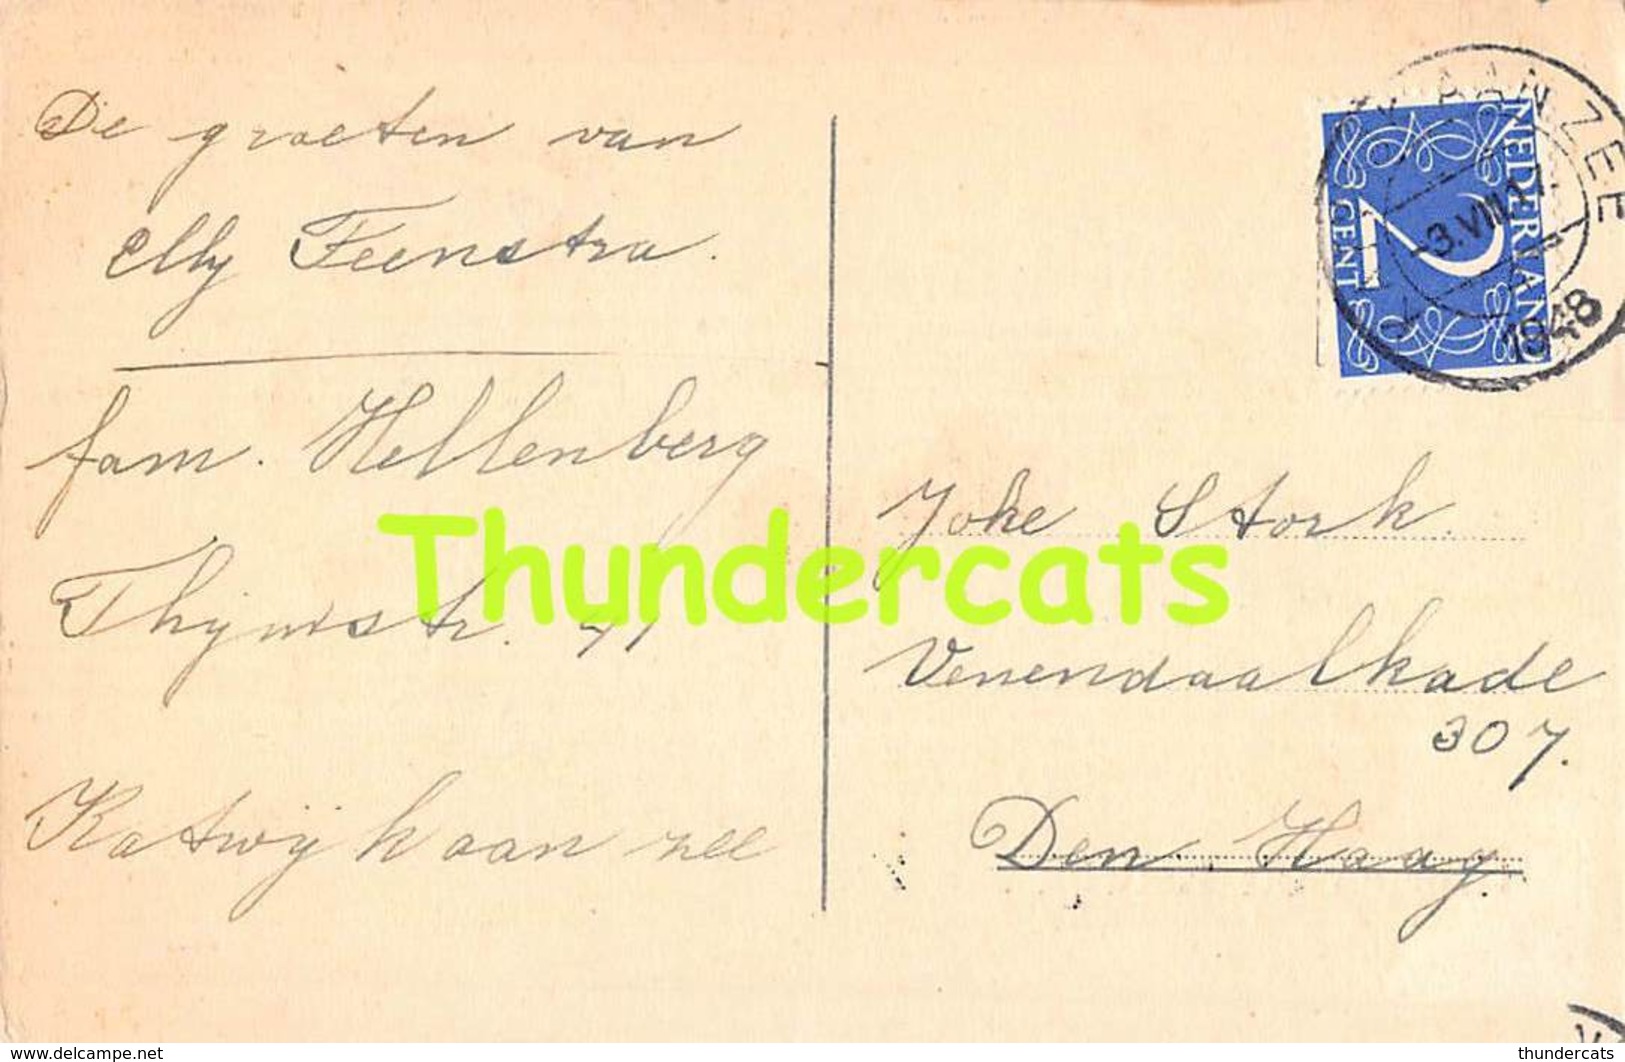 De groeten van
Elly Feenstra.
fam. Hellenberg
Thijmstr. 41
Katwijk aan zee
Joke Stork
Venendaalkade
307.
Den Haag.
NEDERLAND
2
CENT
AAN ZEE
3.VIII.17.
1948
Thundercats
www.delcampe.net
thundercats